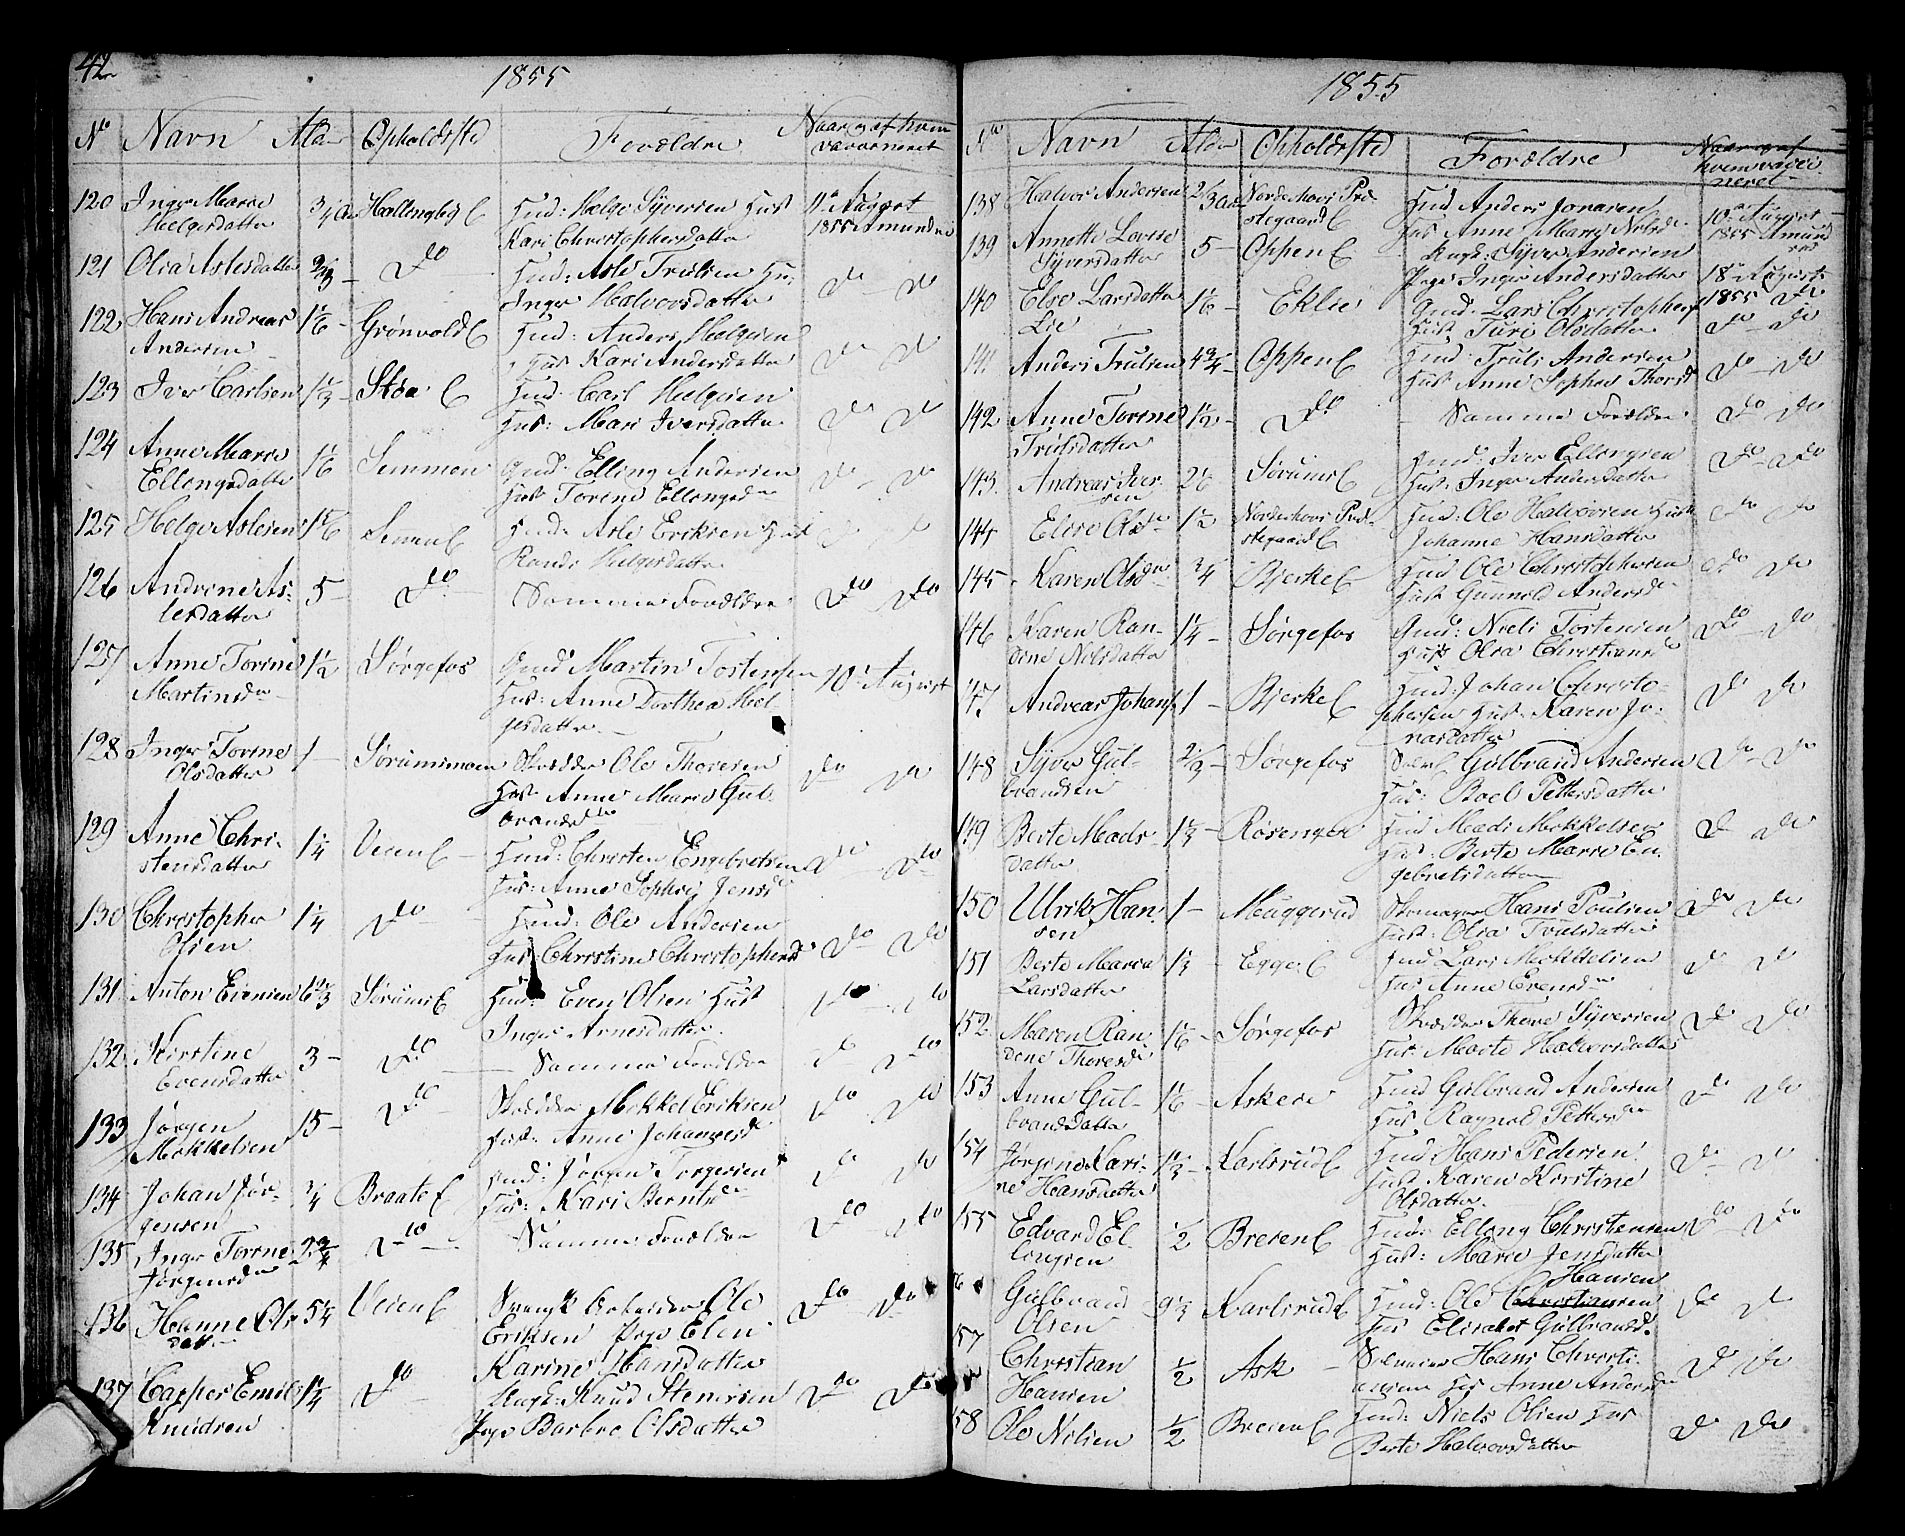 42
1855
No Navn Alder Opholdssted Forældre Naar og af hvem vaccineret
120 Inger Marie Helgesdatter 3/4 Aar Hallingby E Hmd: Helge Syversen Hust Kari Christophersdatter 11te August 1855 Amundsen
121 Olia Aslesdatter Do Hmd: Asle Trulsen Hu: Inger Halvorsdatter Do Do
122 Hans Andreas Andersen 1 1/6 Grønvold E Hmd: Anders Helgesen Hus Kari Andersdatter Do Do
123 Iver Carlsen 1 1/3 Stöa E Hmd: Carl Helgesen Hus: Mari Iversdatter Do Do
124 Anne Marie Ellingsdatter 1 1/6 Semmen Gmd: Elling Andersen Hust Torine Ellingsd Do Do
125 Helge Aslesen 1 5/6 Semmen E Hmd: Asle Eriksen Hust Randi Helgesdatter Do Do
126 Andrine Aslesdatter 5 Do Samme Forældre Do Do
127 Anne Torine Martinsd 1 1/2 Sørgefos Gmd Martin Tostensen Hus: Anne Dorthea Helgesdatter 10 August
128 Inger Torine Olsdatter 1 Sørumsmoen Skrædder Ole Thoresen Hust Anne Marie Gulbrandsd Do Do
129 Anne Christensdatter 1 1/4 Veien E Hmd: Christen Engebretsen Hus: Anne Sophie Jensd Do Do
130 Christopher Olsen 1 1/4 Do Hmd: Ole Andersen Hus: Christine Christophersd Do Do
131 Anton Evensen 6 2/3 Sørums E Hmd: Even Olsen Hust Inger Arnesdatter Do Do
132 Kirstine Evensdatter 3 Do Samme Forældre Do Do
133 Jørgen Mikkelsen 15 Do Skrædder Mikkel Eriksen Hust: Anne Johannesd Do Do
134 Johan Jørgensen 3/4 Braate E Hmd: Jørgen Torgersen Hus: Kari Berntsd Do Do
135 Inger Torine Jørgensd 2 3/4 Do Samme Forældre Do Do
136 Hanne Olsdatter 5 1/4 Veien E Svensk Arbeider Ole Eriksen Pige Elen Karine Hansdatter Do Do
137 Casper Emil Knudsen 1 1/4 Do Ungk: Knud Stensen Pige Barbro Olsdatter Do Do
1855
No Navn Alder Opholdssted Forældre Naar og af hvem vaccineret
138 Halvor Andersen 2/3 Aar Norderhovs Præstegaard E Hmd Anders Jonasen Hus Anne Marie Nilsd 10de August 1855 Amundsen
139 Annette Lovise Syversdatter 5 Oppen E Ungk: Syver Andersen Pige Inger Andersdatter 18de August 1855 Do
140 Else Larsdatter Lie 1 1/6 Eklie Gmd: Lars Christophers Hust Turi Olsdatter Do Do
141 Anders Trulsen 4 3/4 Oppen E Hmd: Truls Andersen Hust Anne Sophie Thorsd Do Do
142 Anne Torine Trulsdatter 1 1/2 Do Samme Forældre Do Do
143 Andreas Iversen Sørums E Hmd: Iver Ellingsen Hust: Inger Andersdatter Do Do
144 Elise Olsd 1 1/2 Norderhovs Præstegaard E Hmd: Ole Halvorsen Hust Johanne Hansdatter Do Do
145 Karen Olsd 3/4 Bjerke E Hmd Ole Christophersen Hust Gunild Andersd Do Do
146 Karen Randine Nilsdatter 1 1/4 Sørgefos Gmd: Niels Tostensen Hust Olia Christiansd Do Do
147 Andreas Johans 1 Bjerke E Hmd: Johan Christophersen Hust: Karen Jonasdatter Do Do
148 Syver Gulbrandsen 2/3 Sørgefos Gulbrand Andersen Hus: Boel Pettersdatter Do Do
149 Berte Madsdatter 1 1/3 Rosengen Hmd Mads Mikkelsen Hus: Berte Marie Engebretsdatter Do Do
150 Ulrik Hansen 1 Muggerud Skomager Hans Poulsen Hust: Olia Trulsdatter Do Do
151 Berte Maria Larsdatter 1 1/3 Egge E Hmd Lars Mikkelsen Hus Anne Evensd Do Do
152 Maren Randine Thoresd 1 1/6 Sørgefos Skrædder Thore Syversen Hus: Marte Halvorsdatter Do Do
153 Anne Gulbrandsdatter 1 1/6 Askeie Hmd Gulbrand Andersen Hus Ragnild Pettersd Do Do
154 Jørgine Karine Hansdatter 1 1/3 Karlsrud E Hmd Hans Pedersen Hust Karen Kirstine Olsdatter Do Do
155 Edvard Ellingsen 1/2 Breien E Hmd: Elling Christensen Hust: Marie Jensdatter Do Do
56 Gulbrand Olsen 9 1/3 Karlsrud E Hmd: Ole Christiansen Hansen Hus Elisabet Gulbrandsd Do Do
157 Christian Hansen 1/2 Ask Hans Christiansen Hus Anne Andersd Do Do
58 Ole Nilsen 1/2 Breien E Hmd: Niels Olsen Hus Berte Halvorsdatter Do Do